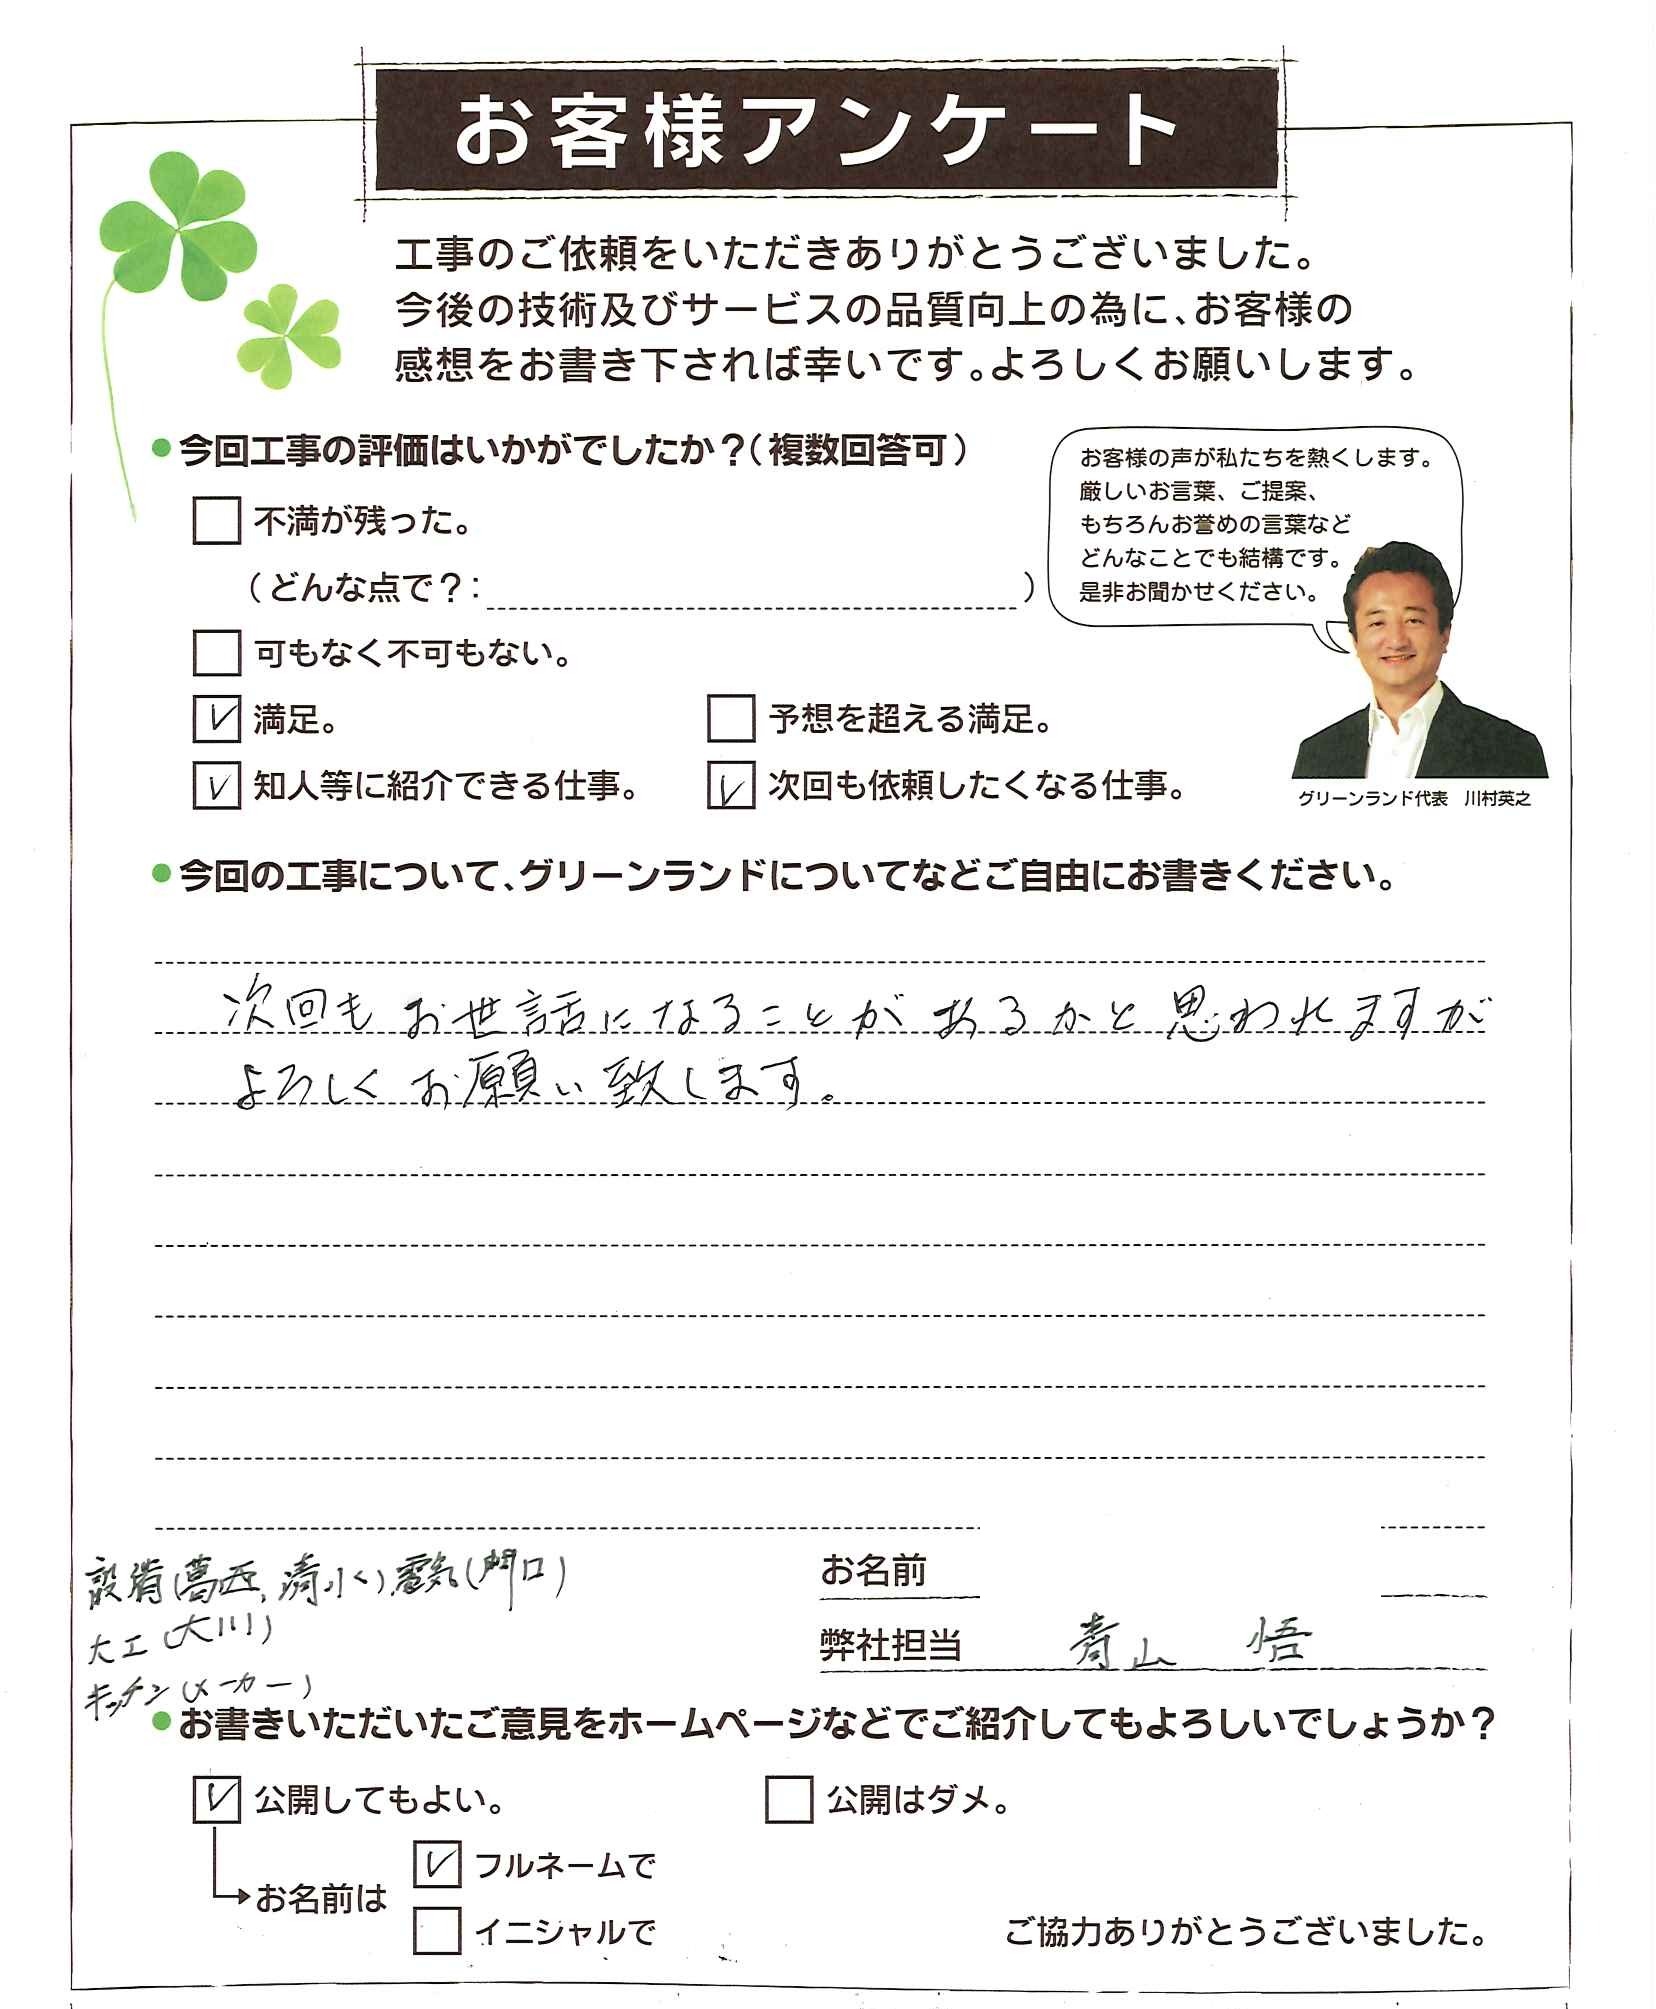 お客様アンケート
工事のご依頼をいただきありがとうございました。
今後の技術及びサービスの品質向上の為に、お客様の
感想をお書き下されば幸いです。よろしくお願いします。
●今回工事の評価はいかがでしたか？（複数回答可）
不満が残った。
（どんな点で？：　）
可もなく不可もない。
満足。
予想を超える満足。
知人等に紹介できる仕事。
次回も依頼したくなる仕事。
お客様の声が私たちを熱くします。
厳しいお言葉、ご提案、
もちろんお誉めの言葉など
どんなことでも結構です。
是非お聞かせください。
グリーンランド代表　川村英之
●今回の工事について、グリーンランドについてなどご自由にお書きください。
次回も お世話になることが あるかと 思われますが
よろしく お願い 致します。
設備(葛西,清水)、電気(門口)
大工(大川)
キッチン(メーカー)
お名前
弊社担当　青山　悟
●お書きいただいたご意見をホームページなどでご紹介してもよろしいでしょうか？
公開してもよい。
公開はダメ。
お名前は
フルネームで
イニシャルで
ご協力ありがとうございました。